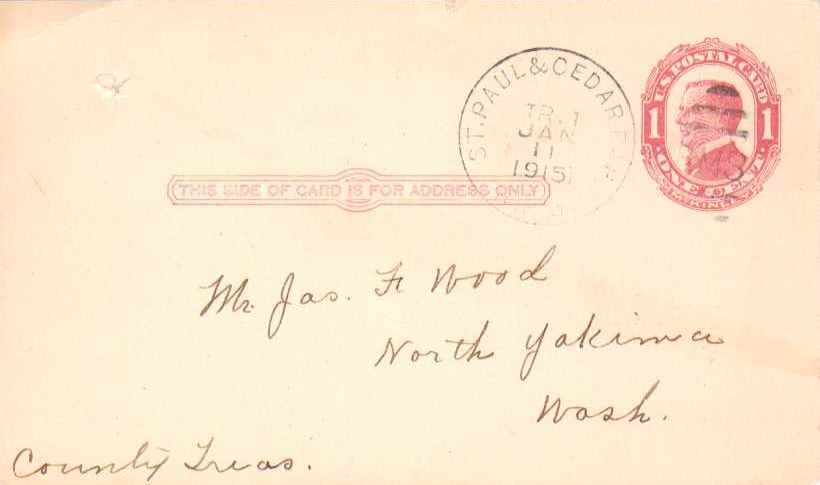 ST. PAUL & CEDAR
TR. 1
JAN
11
1915
U.S. POSTAL CARD
1 1
ONE CENT
THIS SIDE OF CARD IS FOR ADDRESS ONLY
Mr. Jas. F. Wood
North Yakima
Wash.
County Treas.